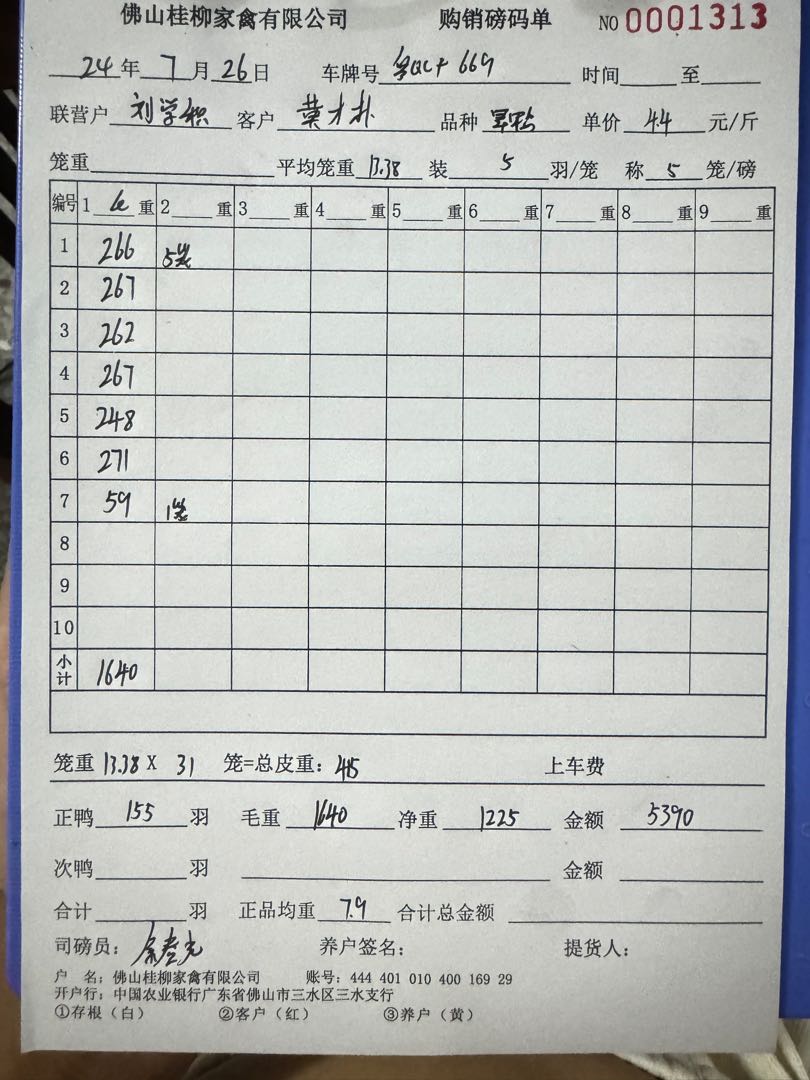 佛山桂柳家禽有限公司 购销磅码单 NO 0001313
24年7月26日 车牌号 669 时间 至
联营户 刘学积 客户 莫才朴 品种 单价 4.4 元/斤
笼重 平均笼重 13.38 装 5 羽/笼 称 5 笼/磅
编号 1 重 2 重 3 重 4 重 5 重 6 重 7 重 8 重 9 重
1 266 5笼
2 267
3 262
4 267
5 248
6 271
7 59 1笼
8
9
10
小计 1640
笼重 13.38 X 31 笼=总皮重: 415 上车费
正鸭 155 羽 毛重 1640 净重 1225 金额 5390
次鸭 羽 金额
合计 羽 正品均重 7.9 合计总金额
司磅员: 养户签名: 提货人:
户 名: 佛山桂柳家禽有限公司 账号: 444 401 010 400 169 29
开户行: 中国农业银行广东省佛山市三水区三水支行
①存根(白) ②客户(红) ③养户(黄)